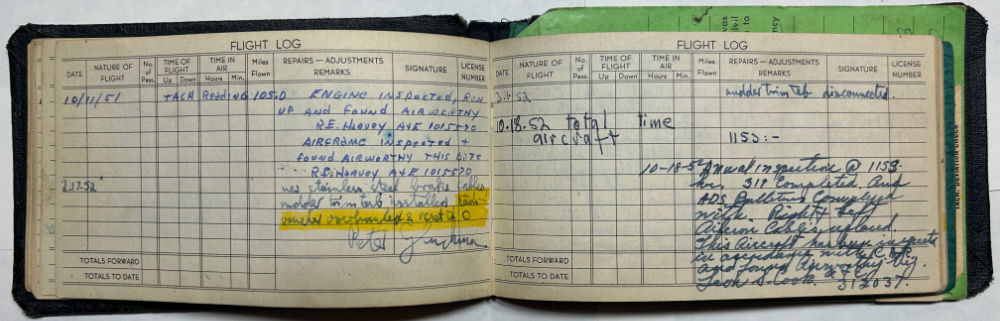 FLIGHT LOG
DATE
NATURE OF FLIGHT
No. of Pass.
TIME OF FLIGHT
Up Down
TIME IN AIR
Hours Min.
Miles Flown
REPAIRS — ADJUSTMENTS
REMARKS
SIGNATURE
LICENSE NUMBER
10/11/51 TACH Reading 105.0 ENGINE INSPECTED, RUN
UP AND FOUND AIRWORTHY
R.E. HARVEY A&E 1015570
AIRFRAME INSPECTED +
FOUND AIRWORTHY THIS DATE
R.E. HARVEY A&E 1015570
2.17.52 new stainless steel brake cables
rudder trim tab installed tach
overhauled & reset to 0
Peter
TOTALS FORWARD
TOTALS TO DATE
FLIGHT LOG
DATE
NATURE OF FLIGHT
No. of Pass.
TIME OF FLIGHT
Up Down
TIME IN AIR
Hours Min.
Miles Flown
REPAIRS — ADJUSTMENTS
REMARKS
SIGNATURE
LICENSE NUMBER
rudder trim tab disconnected.
10.18.52 total time
aircraft 1153:-
10-18-52 Annual inspection @ 1153
hr. 319 Completed. And
ADS, Bulletins Complyed
with. Right & Left
Aileron Cables
This Aircraft has been inspected
in accordance with C.A.R.
and found Airworthy
Leon S. Cook. A&E
312037.
TOTALS FORWARD
TOTALS TO DATE